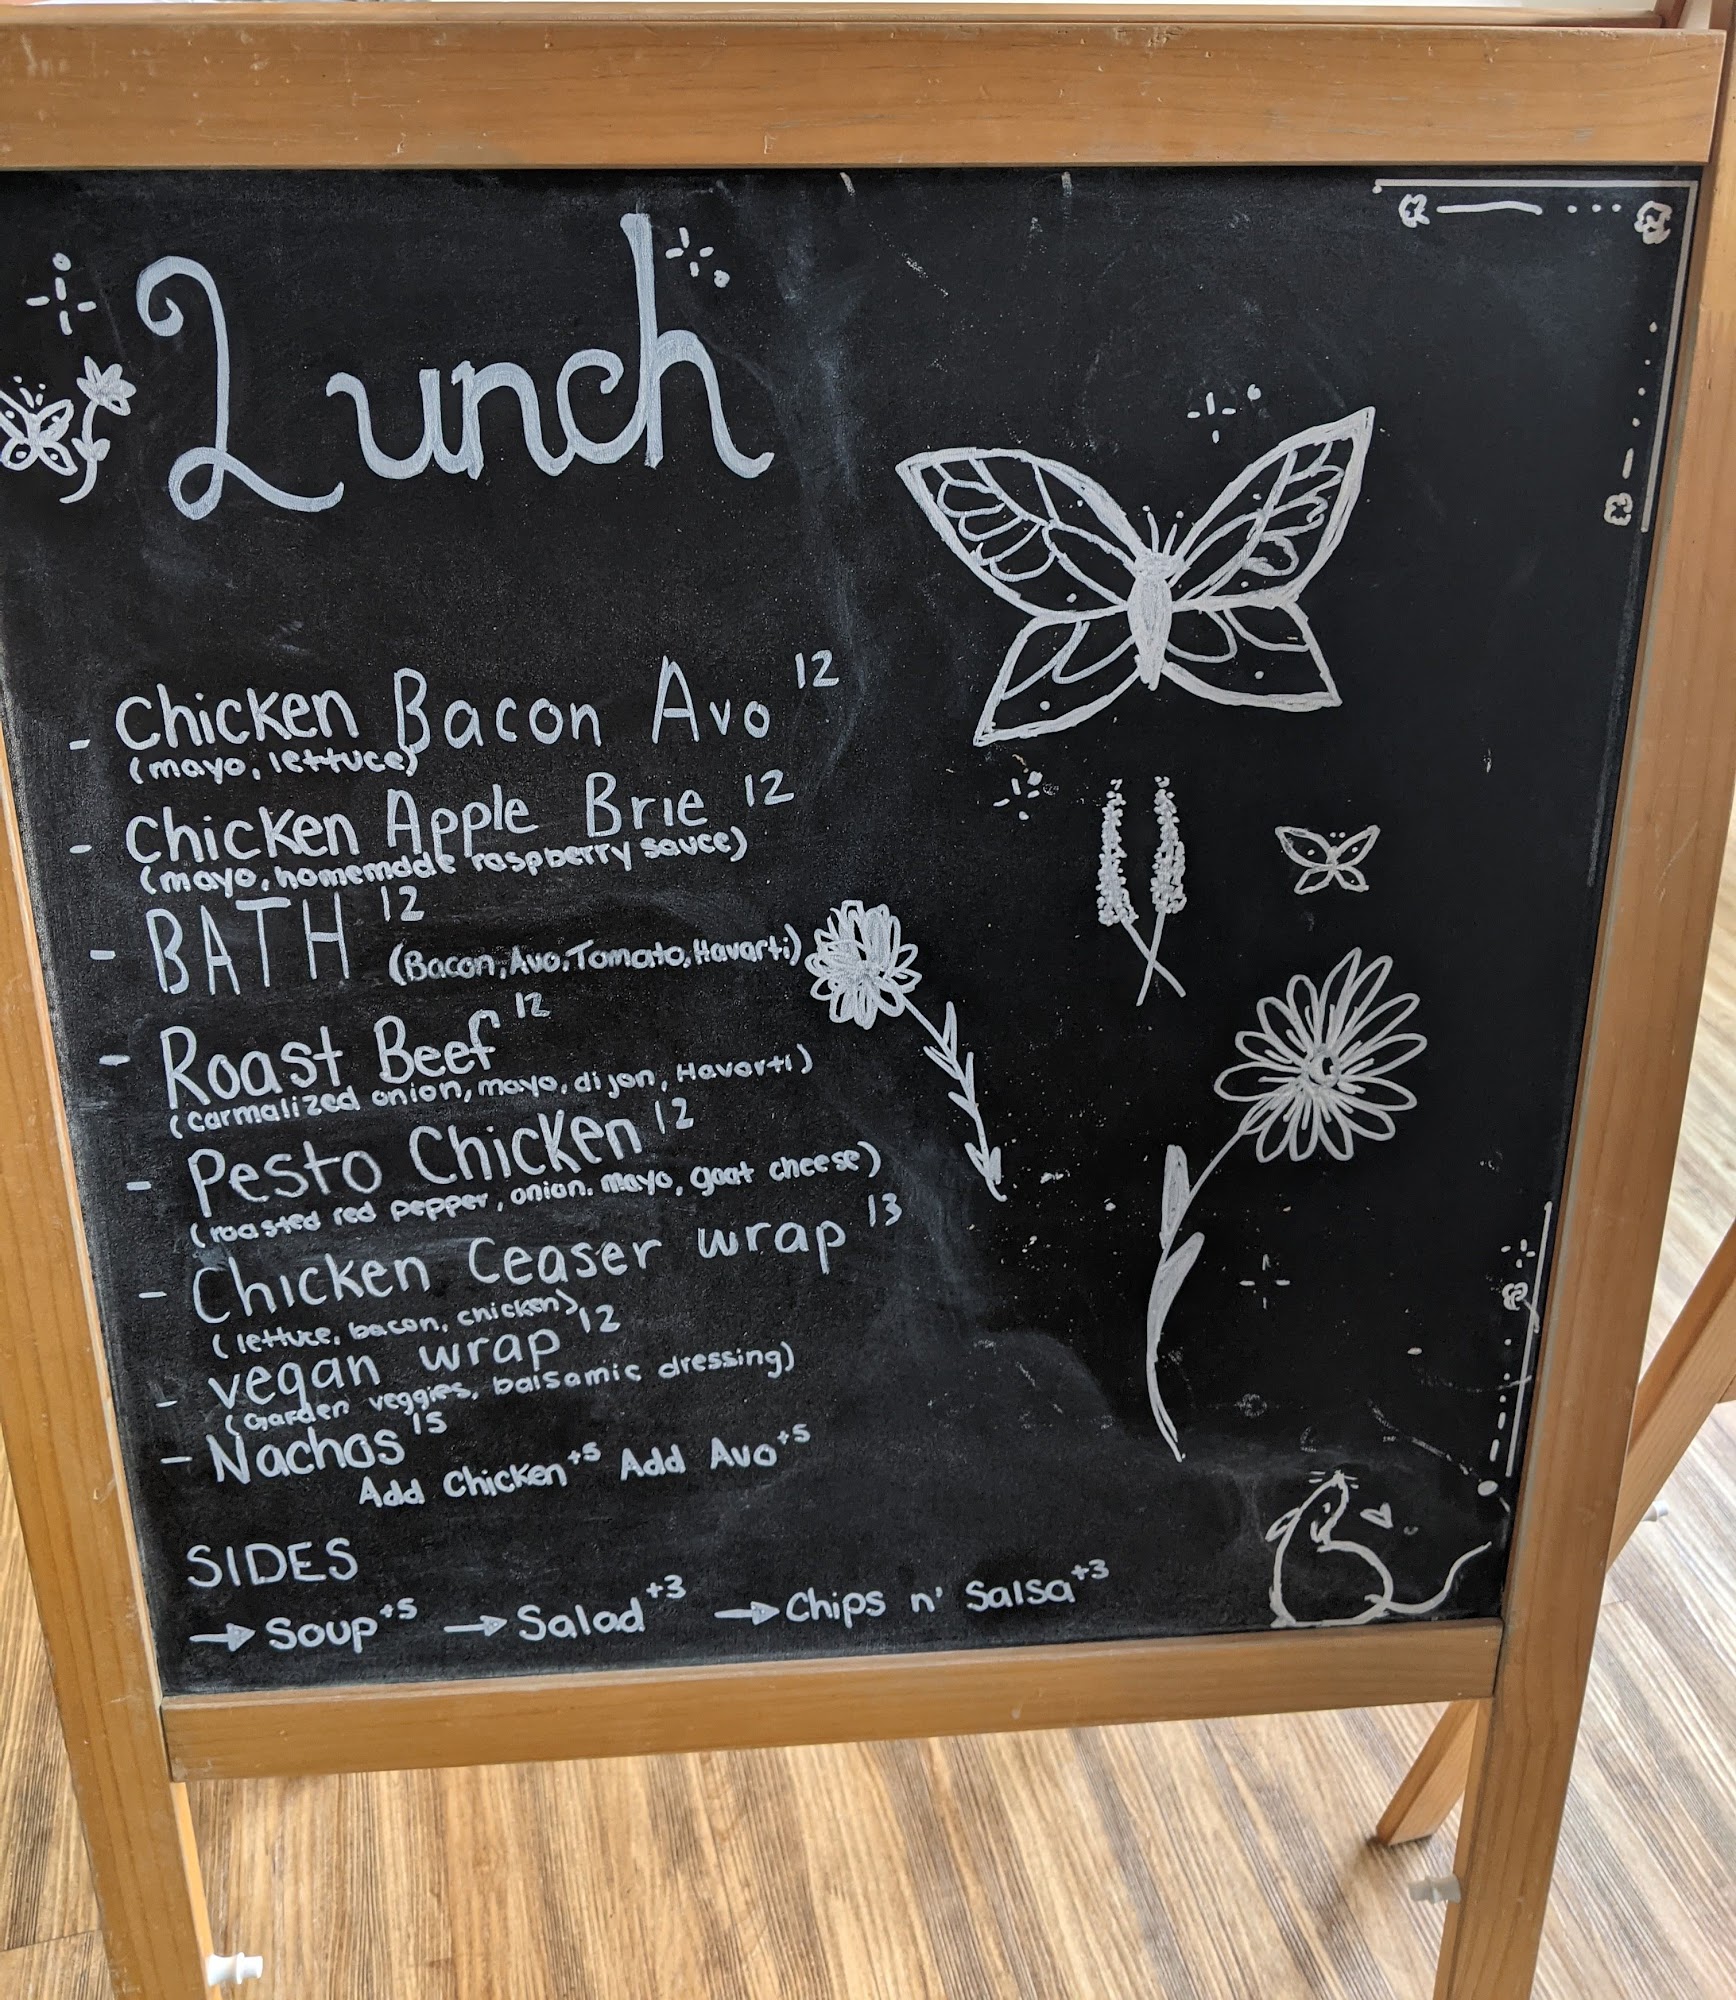 Lunch
- Chicken Bacon Avo 12
(mayo, lettuce)
- Chicken Apple Brie 12
(mayo, homemade raspberry sauce)
- BATH 12 (Bacon, Avo, Tomato, Havarti)
- Roast Beef 12
(carmalized onion, mayo, dijon, Havarti)
- Pesto Chicken 12
(roasted red pepper, onion. mayo, goat cheese)
- Chicken Ceaser wrap 13
(lettuce, bacon, chicken)
- vegan wrap 12
(Garden veggies, balsamic dressing)
- Nachos 15
Add Chicken +5 Add Avo +5
SIDES
→ Soup +5 → Salad +3 → Chips n' Salsa +3